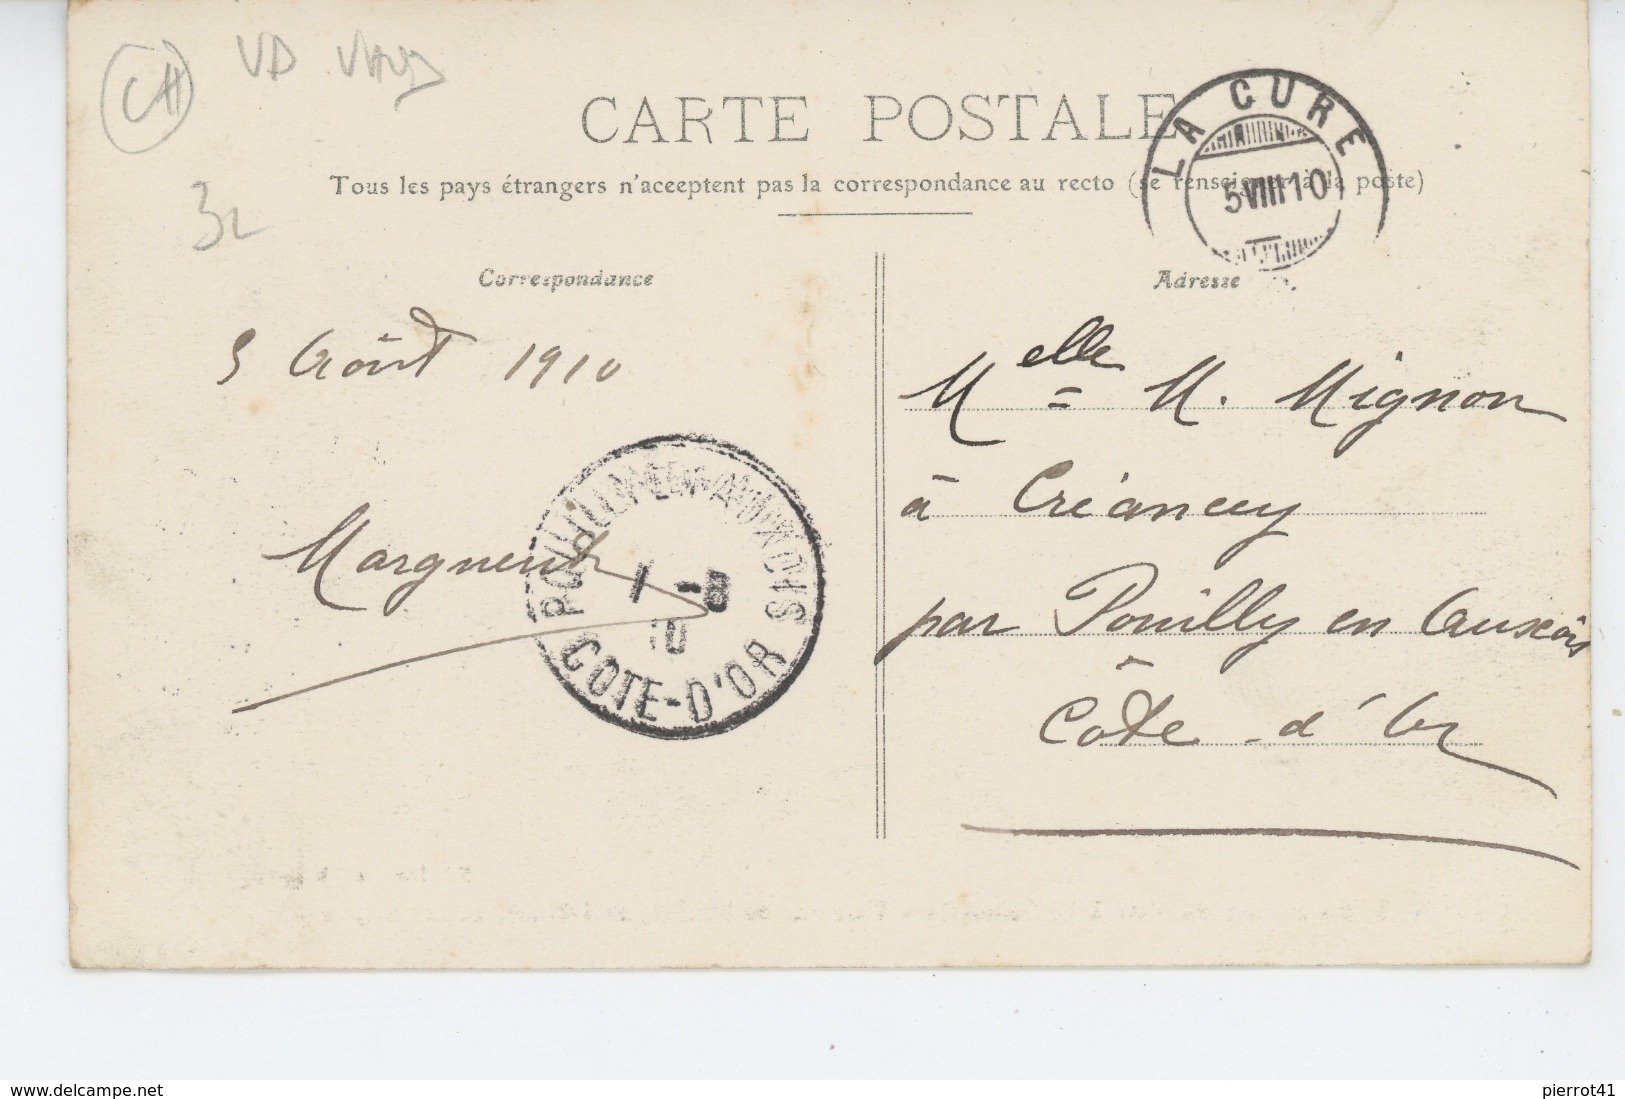 CH VD VAUD
CARTE POSTALE
Tous les pays étrangers n'aceeptent pas la correspondance au recto (se renseigner à la poste)
LA CURE
5 VIII 10
32
Correspondance
Adresse
5 Août 1910
Melle M. Mignon
à Créancey
par Pouilly en Auxois
Côte-d'Or
Marguerite
POUILLY-EN-AUXOIS
-8
10
COTE-D'OR
www.delcampe.net
pierrot41